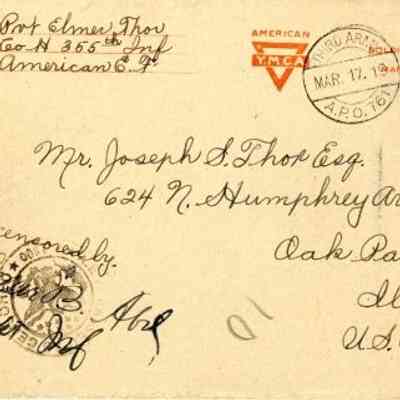 Pvt Elmer Thor
Co H 355th Inf
American E. F.
AMERICAN
Y.M.C.A
THIRD ARM
MAR. 17. 19
A.P.O. 761
SOLD
Mr. Joseph S. Thor Esq.
624 N. Humphrey A
Oak Pa
Ill
U.S.
censored by
Inf
10